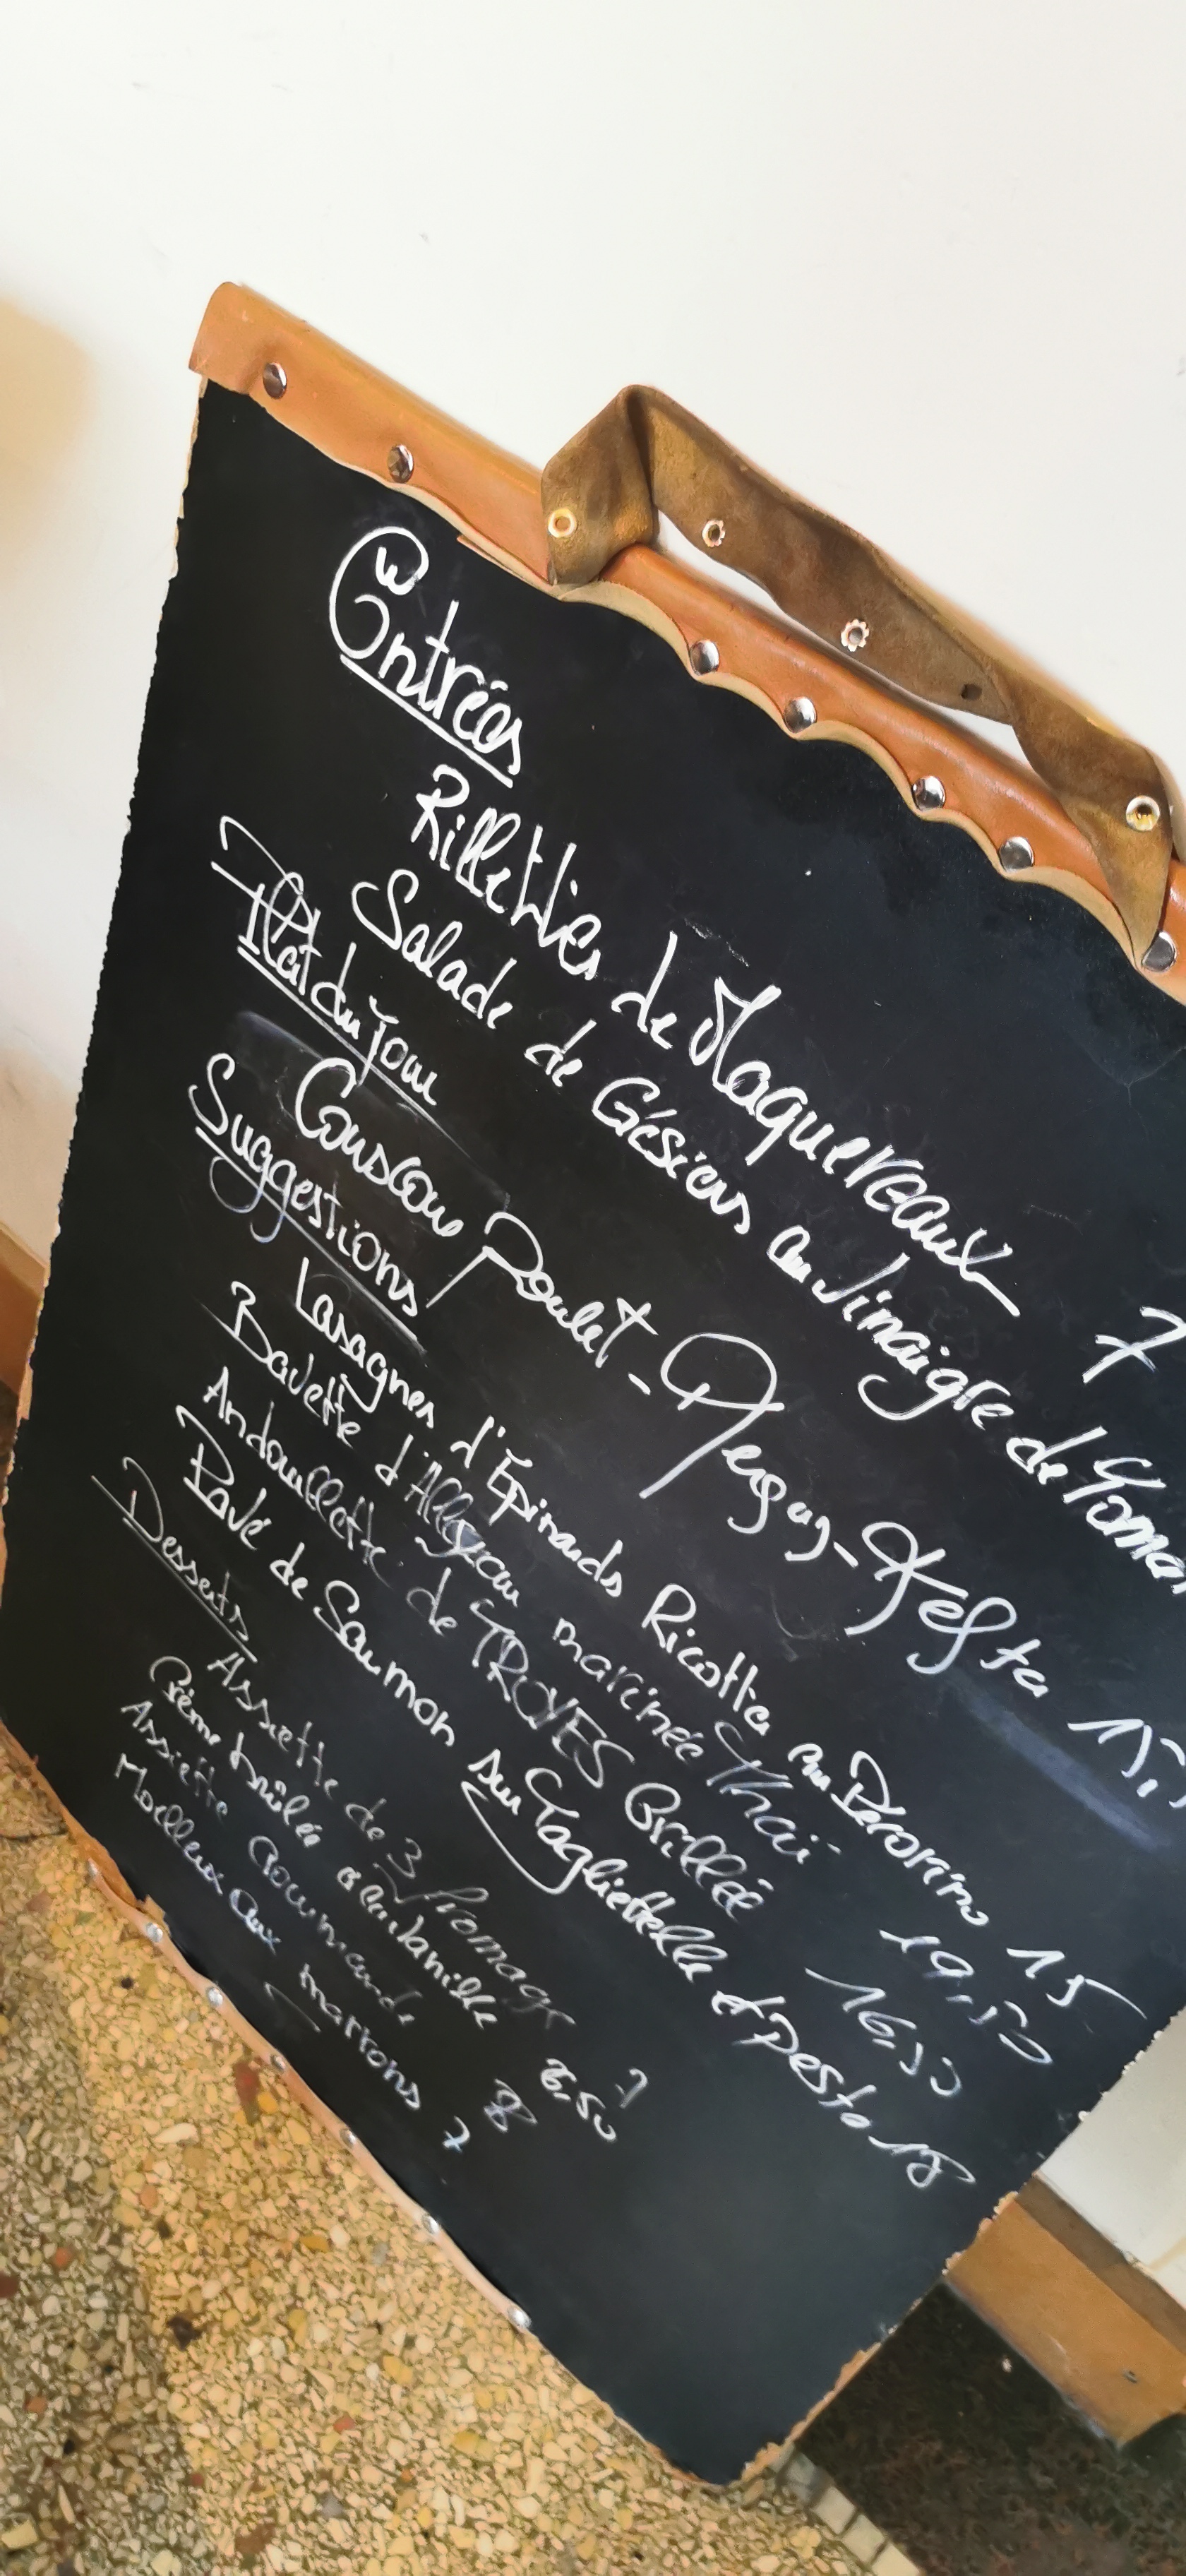 Entrées
Rillettes de Maquereaux 7
Salade de Gésiers au Vinaigre de
Plat du Jour
Couscous Poulet - Merguez - Kefta
Suggestions
Lasagnes d'Epinards Ricotta au Pecorino 15
Bavette d'Alloyau marinée Thai 19,50
Andouillette de TROYES Grillée
Pavé de Saumon sur Tagliettelle et Pesto 18
Desserts
Assiette de 3 fromage 7
Crème brûlée a la Vanille 6,50
Assiette Gourmande 8
Moelleux aux marrons 7